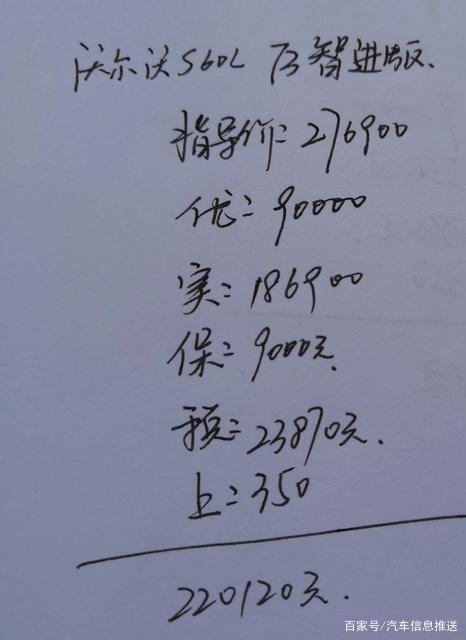 沃尔沃S60L T3智进版.
指导价=276900
优=90000
实=186900
保=9000元.
预=23870元.
上=350
220120元.
百家号/汽车信息推送